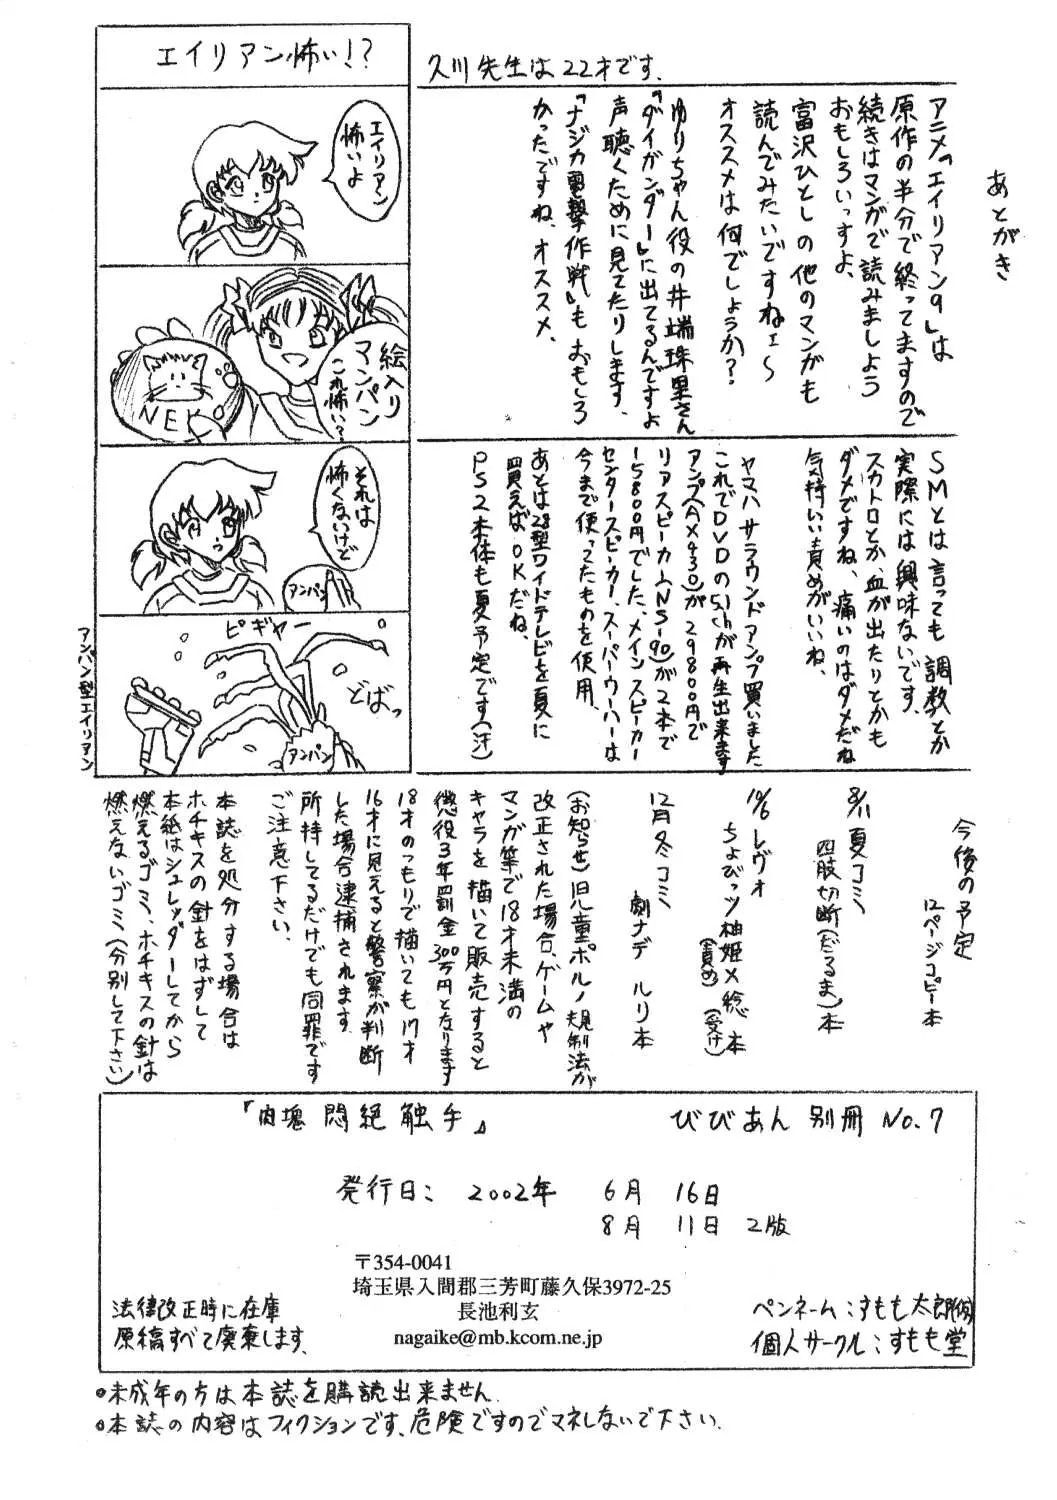 エイリアン怖い!?
エイリアン
怖いよ
絵入り
マンパン
これ怖い?
NEK
それは
怖くないけど
アンパン
ピギャー
どばっ
アンパン
アンパン型エイリアン
久川先生は22才です.
あとがき
アニメ『エイリアン9』は
原作の半分で終ってますので
続きはマンガで読みましよう
おもしろいっすよ、
富沢ひとしの他のマンガも
読んでみたいですねェ〜
オススメは何でしょうか?
ゆりちゃん役の井端珠里さん
『ダイガンダー』に出てるんですよ
声聴くために見てたりします、
『ナジカ電撃作戦』もおもしろ
かったですね、オススメ、
SMとは言っても調教とか
実際には興味ないです。
スカトロとか、血が出たりとかも
ダメですね、痛いのはダメだね
気持いい責めがいいね、
ヤマハサラウンドアンプ買いました
これでDVDの5.1chが再生出来ます
アンプ(AX430)が29800円で
リアスピーカー(NS-90)が2本で
15800円でした、メインスピーカー
センタースピーカー、スーパーウーハーは
今まで使ってたものを使用、
あとは28型ワイドテレビを夏に
買えばOKだね、
PS2本体も夏予定です(汗)
今後の予定
12ページコピー本
8/11夏コミ
四肢切断(だるま)本
10/6レヴォ
ちょびッツ柚姫×稔本
(責め)(受け)
12月冬コミ
劇ナデ ルリ本
(お知らせ)児童ポルノ規制法が
改正された場合、ゲームや
マンガ等で18才未満の
キャラを描いて販売すると
懲役3年罰金300万円となります
18才のつもりで描いても17才
16才に見えると警察が判断
した場合逮捕されます
所持してるだけでも同罪です
ご注意下さい。
本誌を処分する場合は
ホチキスの針をはずして
本紙はシュレッダーしてから
燃えるゴミ、ホチキスの針は
燃えないゴミ(分別して下さい)
『肉塊悶絶触手』 びびあん別冊 No.7
発行日: 2002年 6月 16日
8月 11日 2版
〒354-0041
埼玉県入間郡三芳町藤久保3972-25
長池利玄
nagaike@mb.kcom.ne.jp
法律改正時に在庫
原稿すべて廃棄します.
ペンネーム:すもも太郎(仮)
個人サークル:すもも堂
•未成年の方は本誌を購読出来ません.
•本誌の内容はフィクションです、危険ですのでマネしないで下さい.